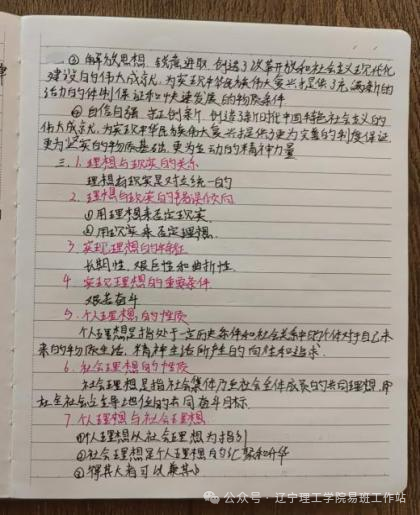 ③解放思想、锐意进取，创造了改革开放和社会主义现代化
建设的伟大成就，为实现中华民族伟大复兴提供了充满新的
活力的体制保证和快速发展的物质条件
④自信自强、守正创新，创造了新时代中国特色社会主义的
伟大成就，为实现中华民族伟大复兴提供了更为完善的制度保证
更为坚实的物质基础、更为主动的精神力量
三、1.理想与现实的关系
理想与现实是对立统一的
2.理想与现实的错误倾向
①用理想来否定现实
②用现实来否定理想
3.实现理想的特征
长期性、艰巨性和曲折性
4.实现理想的重要条件
艰苦奋斗
5.个人理想的性质
个人理想是指处于一定历史条件和社会关系中的个体对于自己未
来的物质生活、精神生活所产生的向往和追求
6.社会理想的性质
社会理想是指社会集体乃至社会全体成员的共同理想，即
在全社会占主导地位的共同奋斗目标
7.个人理想与社会理想
①个人理想以社会理想为指引
②社会理想是个人理想的汇聚和升华
③得其大者可以兼其小
公众号·辽宁理工学院易班工作站